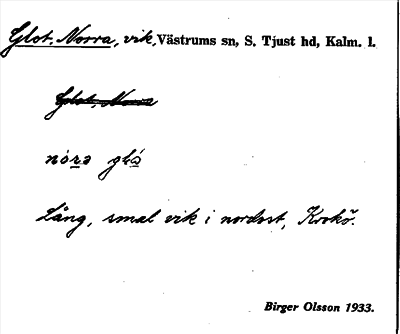 Glot, Norra, vik, Västrums sn, S. Tjust hd, Kalm. l.
Glot, Norra
nó̱ra gló
Lång, smal vik i nordost, Krokö.
Birger Olsson 1933.